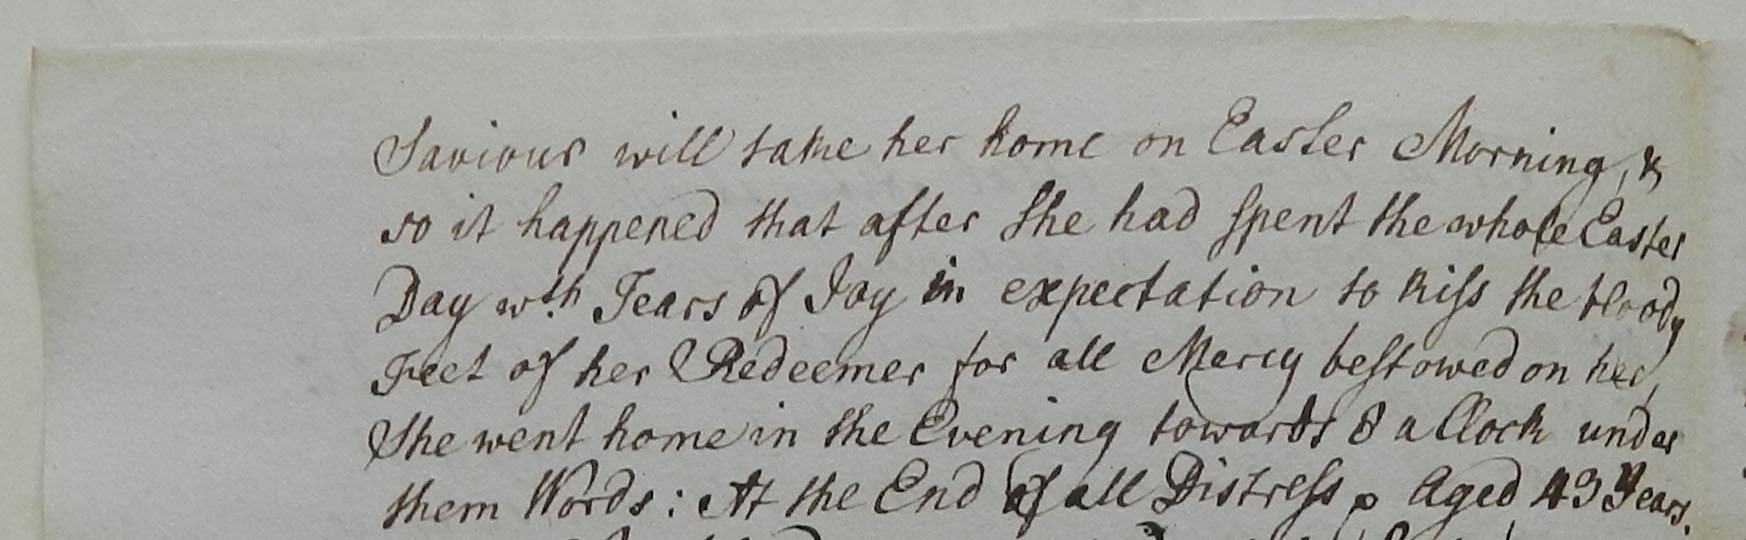 Saviour will take her home on Easter Morning, &
so it happened that after she had spent the whole Easter
Day wth. Tears of Joy in expectation to kiss the bloody
Feet of her Redeemer for all Mercy bestowed on her,
She went home in the Evening towards 8 a Clock under
them Words: At the End of all Distress p Aged 43 Years.